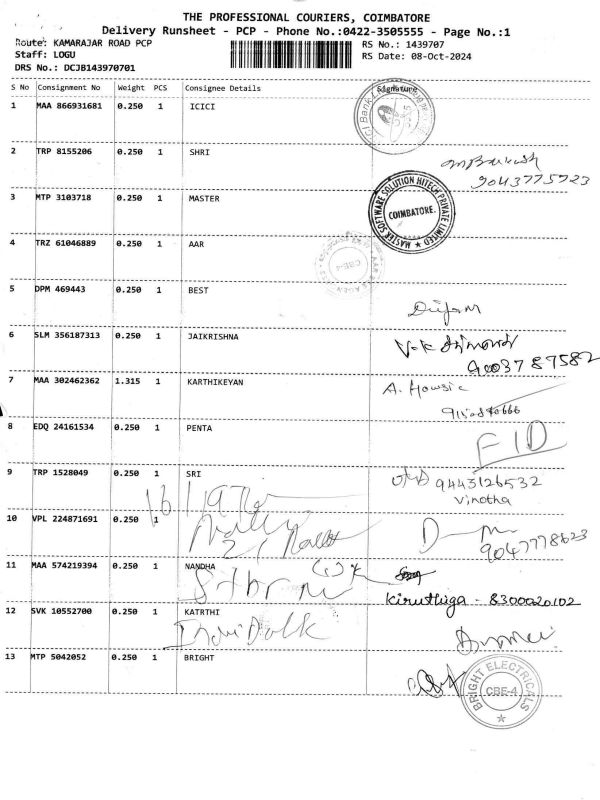 THE PROFESSIONAL COURIERS, COIMBATORE
Delivery Runsheet - PCP - Phone No.:0422-3505555 - Page No.:1
Route: KAMARAJAR ROAD PCP
RS No.: 1439707
Staff: LOGU
RS Date: 08-Oct-2024
DRS No.: DCJB143970701
S No Consignment No Weight PCS Consignee Details Signature
1 MAA 866931681 0.250 1 ICICI
2 TRP 8155206 0.250 1 SHRI
9043775723
3 MTP 3103718 0.250 1 MASTER
MASTER SOFTWARE SOLUTION HITECH PRIVATE LIMITED
COIMBATORE.
4 TRZ 61046889 0.250 1 AAR
CBE-4
5 DPM 469443 0.250 1 BEST
6 SLM 356187313 0.250 1 JAIKRISHNA
9003787582
7 MAA 302462362 1.315 1 KARTHIKEYAN
A. Howsic
8 EDQ 24161534 0.250 1 PENTA
9 TRP 1528049 0.250 1 SRI
9443126532
Vinotha
10 VPL 224871691 0.250 1
9047778623
11 MAA 574219394 0.250 1 NANDHA
Kiruthiga - 8300020102
12 SVK 10552700 0.250 1 KATRTHI
13 MTP 5042052 0.250 1 BRIGHT
BRIGHT ELECTRICALS
CBE-4